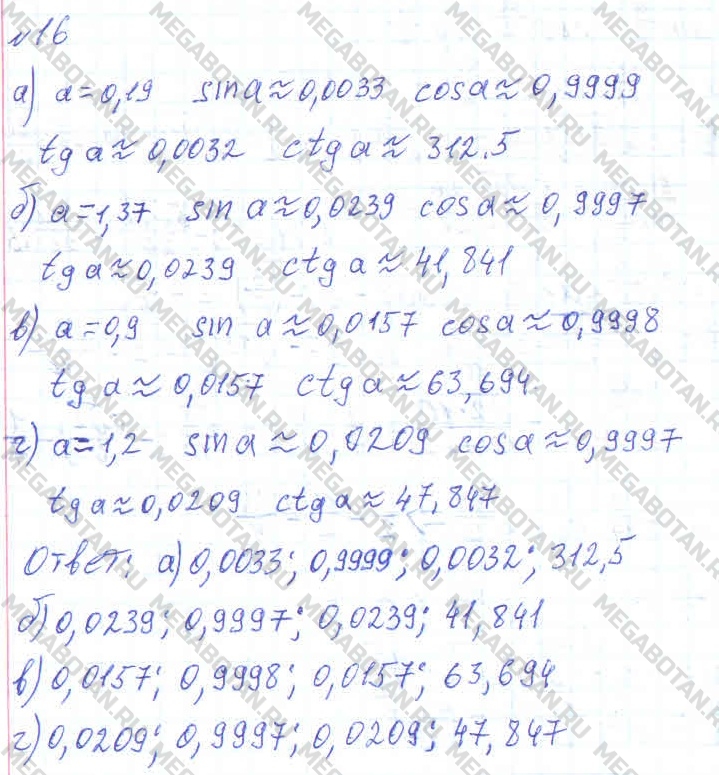 №16
а) a=0,19 sin a≈0,0033 cos a≈0,9999
tg a≈0,0032 ctg a≈312.5
б) a=1,37 sin a≈0,0239 cos a≈0,9997
tg a≈0,0239 ctg a≈41,841
в) a=0,9 sin a≈0,0157 cos a≈0,9998
tg a≈0,0157 ctg a≈63,694
г) a=1,2 sin a≈0,0209 cos a≈0,9997
tg a≈0,0209 ctg a≈47,847
Ответ: а) 0,0033; 0,9999; 0,0032; 312,5
б) 0,0239; 0,9997; 0,0239; 41,841
в) 0,0157; 0,9998; 0,0157; 63,694
г) 0,0209; 0,9997; 0,0209; 47,847
MEGABOTAN.RU